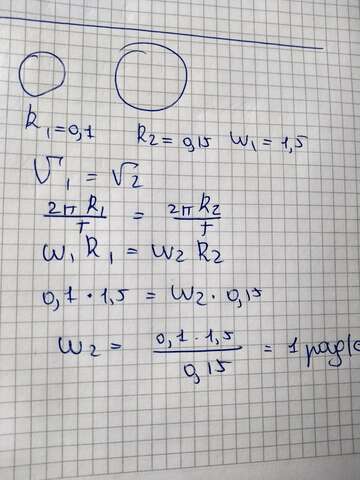 R₁=0,1 R₂=0,15 ω₁=1,5
υ₁ = υ₂
2π R₁ / T = 2π R₂ / T
ω₁ R₁ = ω₂ R₂
0,1 · 1,5 = ω₂ · 0,15
ω₂ = 0,1 · 1,5 / 0,15 = 1 рад/с